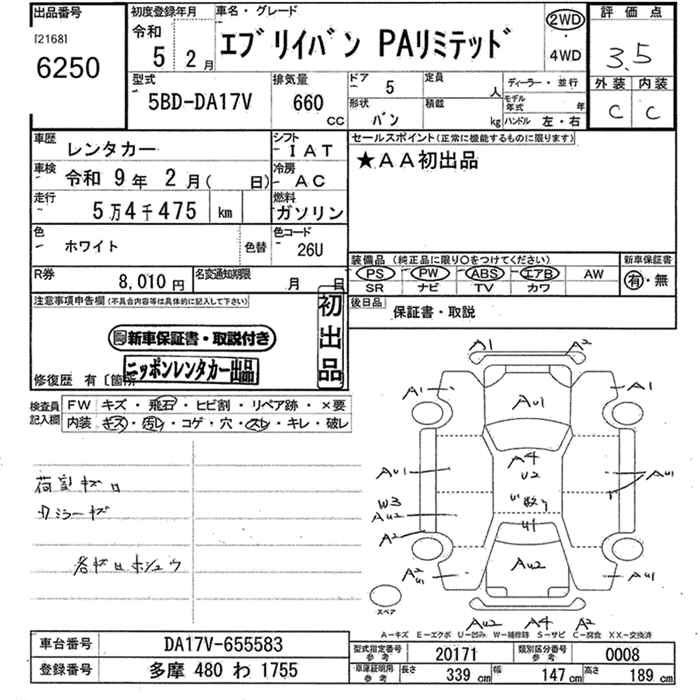 出品番号
[2168]
6250
初度登録年月
令和
5 2月
車名・グレード
エブリイバン PAリミテッド
2WD
4WD
評価点
3.5
外装 内装
C C
型式
5BD-DA17V
排気量
660 CC
ドア 5
形状 バン
定員 人
積載 kg
ディーラー・並行
モデル年式 年
ハンドル 左・右
車歴 レンタカー
シフト IAT
車検 令和 9年 2月( 日)
冷房 AC
走行 5万4千475 km
燃料 ガソリン
色 ホワイト 色替
色コード 26U
R券 8,010円
名変通知期限 月 日
セールスポイント(正常に機能するものに限ります)
★AA初出品
装備品 (純正品に限り○をつけてください)
PS PW ABS エアB AW
SR ナビ TV カワ
新車保証書
有・無
後日品 保証書・取説
注意事項申告欄(不具合内容等は具体的に記入して下さい)
新車保証書・取説付き
ニッポンレンタカー出品
初出品
修復歴 有 〔箇所
検査員記入欄
FW キズ・飛石・ヒビ割・リペア跡・×要
内装 キズ・汚レ・コゲ・穴・スレ・キレ・破レ
荷室キズ
ミラーキズ
A1 A2
A1 A1
AU1
A4
U2
AU1 AU1
W3
AU2
A2
U1
U1
AU2
A2
U1
AU1
スペア
AU2 A4 A2
A-キズ E-エクボ U-凹み W-補修跡 S-サビ C-腐食 XX-交換済
車台番号 DA17V-655583
登録番号 多摩 480 わ 1755
型式指定番号 参考 20171
類別区分番号 参考 0008
車庫証明用 参考 長さ 339 cm 幅 147 cm 高さ 189 cm